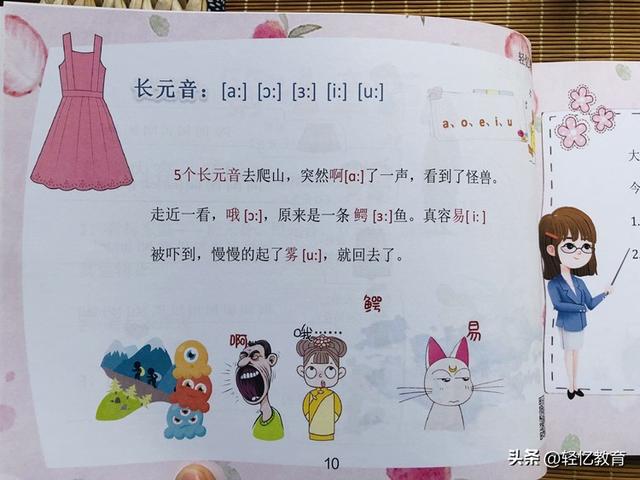 长元音：[a:] [ɔ:] [ɜ:] [i:] [u:]
a、o、e、i、u
5个长元音去爬山，突然啊[ɑ:]了一声，看到了怪兽。
走近一看，哦 [ɔ:]，原来是一条 鳄 [ɜ:]鱼。真容易[ i:]
被吓到，慢慢的起了雾 [u:]，就回去了。
鳄
啊
哦……
易
10
大
今
1.
2.
头条 @轻忆教育